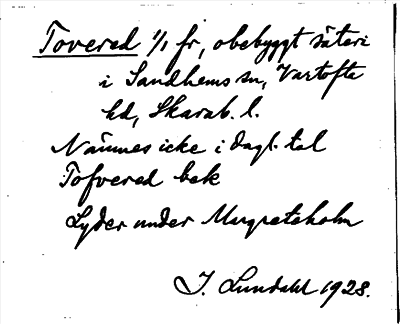 Tovered 1/1 fr, obebyggt säteri
i Sandhems sn, Vartofta
hd, Skarab. l.
Nämnes icke i dagl. tal
Tofvered bek
Lyder under Margreteholm
J. Lundahl 1928.